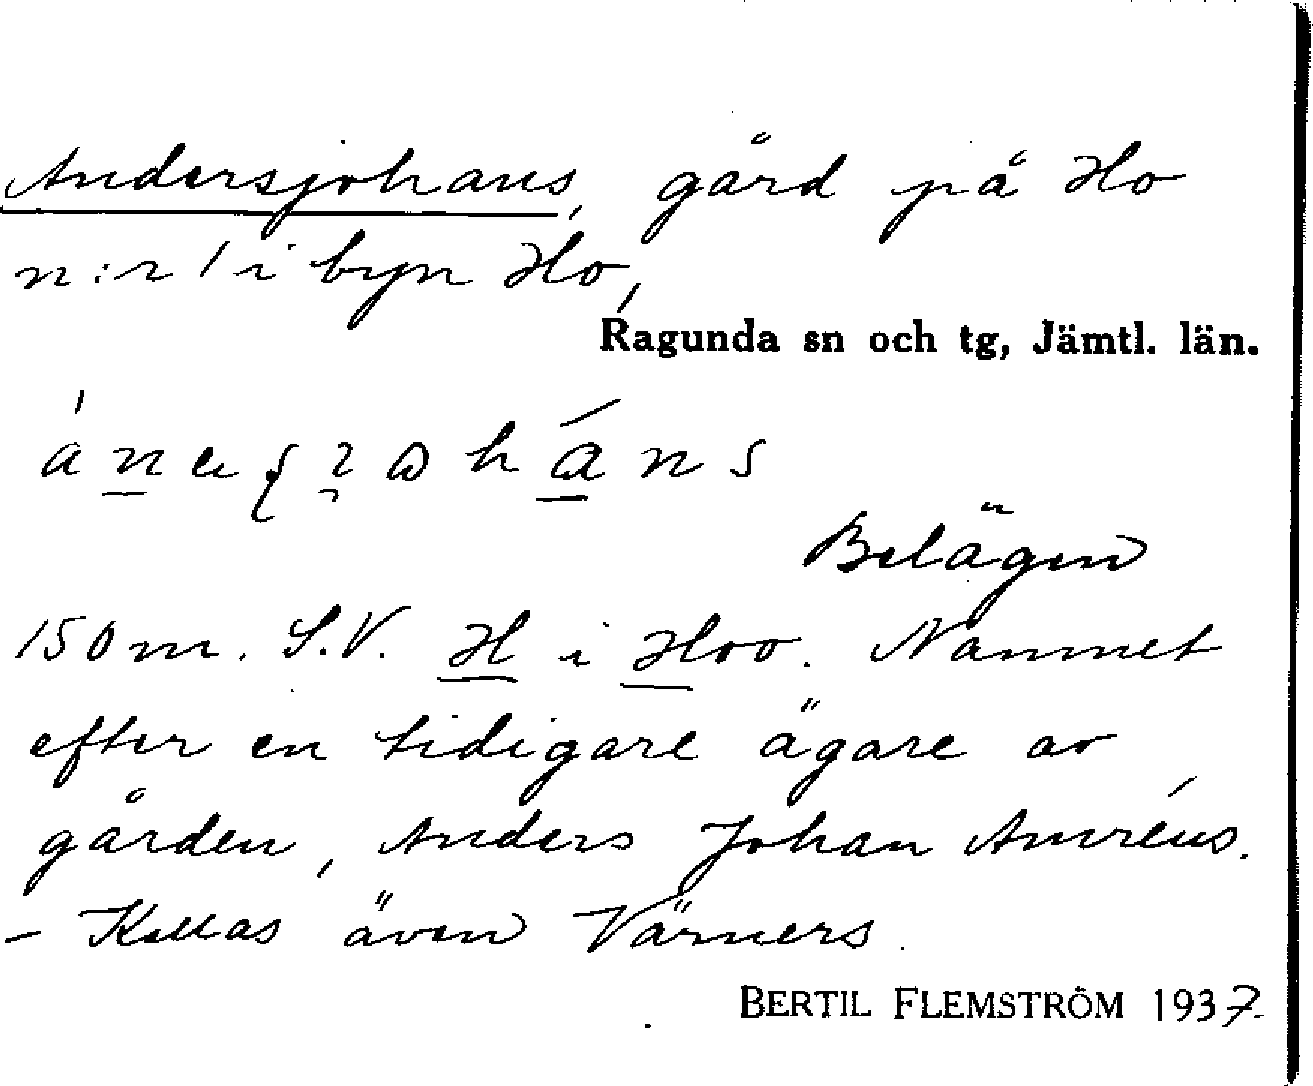 Andersjohans, gård på Ho
n:r 1 i byn Ho,
Ragunda sn och tg, Jämtl. län.
Belägen
150 m. S.V. H i Hoo. Namnet
efter en tidigare ägare av
gården, Anders Johan Amréus.
– Kallas även Värners.
BERTIL FLEMSTRÖM 1937